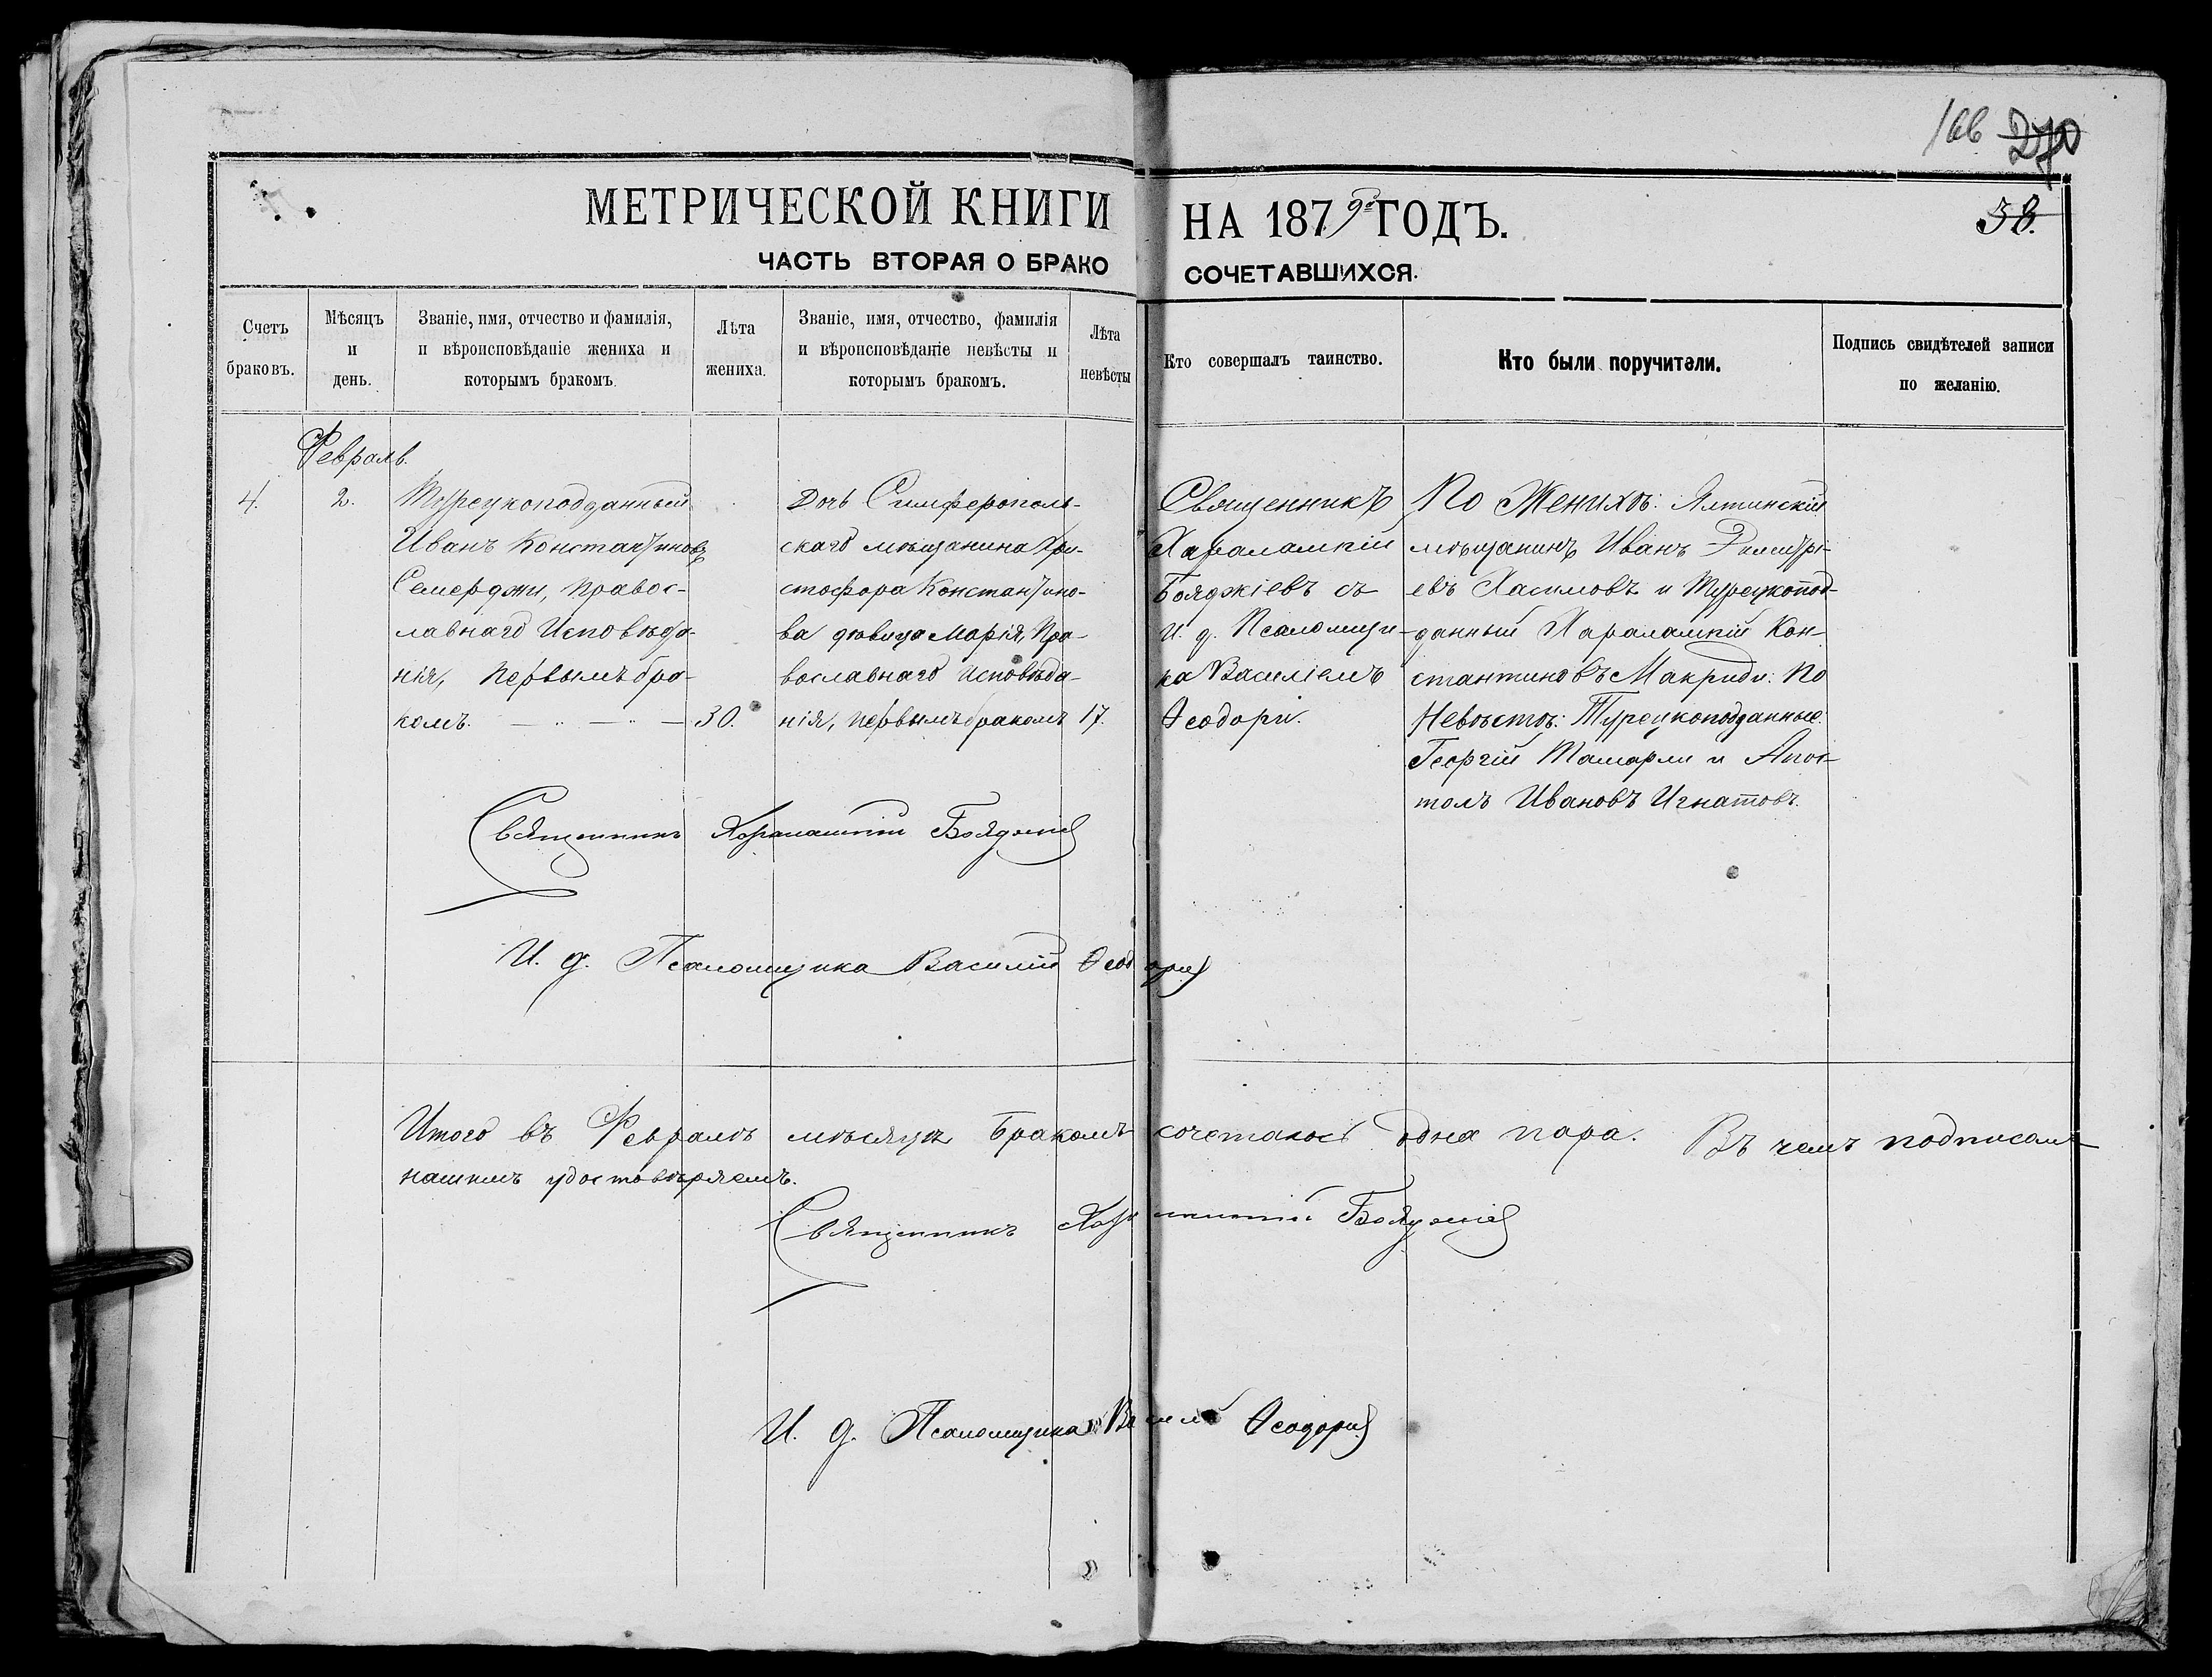 166 270
МЕТРИЧЕСКОЙ КНИГИ НА 1879го ГОДЪ.
38.
ЧАСТЬ ВТОРАЯ О БРАКОСОЧЕТАВШИХСЯ.
Счетъ
браковъ.
Мѣсяцъ
и
день.
Званіе, имя, отчество и фамилія,
и вѣроисповѣданіе жениха и
которымъ бракомъ.
Лѣта
жениха.
Званіе, имя, отчество, фамилія
и вѣроисповѣданіе невѣсты и
которымъ бракомъ.
Лѣта
невѣсты
Кто совершалъ таинство.
Кто были поручители.
Подпись свидѣтелей записи
по желанію.
Февраль.
4.
2.
Турецкоподданный
Иванъ Константиновъ
Семерджи, Правос-
лавнаго Исповѣда-
нія, первымъ бра-
комъ.
30.
Дочь Симферополь-
скаго мѣщанина Хри-
стофора Константино-
ва дѣвица Марія, Пра-
вославнаго Исповѣда-
нія, первымъ бракомъ
17.
Священникъ
Харалампій
Бояджіевъ съ
И. д. Псаломщи-
ка Василіемъ
Ѳеодори.
По Женихѣ: Ялтинскій
мѣщанинъ Иванъ Димитрі-
евъ Хасимовъ и Турецкопод-
данный Харалампій Кон-
стантиновъ Макриди. По
Невѣстѣ: Турецкоподданные
Георгій Тамарли и Апос-
толъ Ивановъ Игнатовъ.
Священникъ Харалампій Бояджіевъ
И. д. Псаломщика Василій Ѳеодори
Итого въ Февралѣ мѣсяцѣ Бракомъ сочеталось одна пара. Въ чемъ подписомъ
нашимъ удостовѣряемъ.
Священникъ Харалампій Бояджіевъ
И. д. Псаломщика Василій Ѳеодори